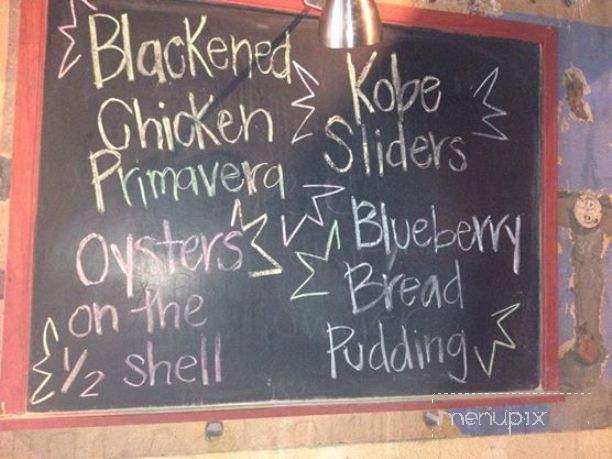 Blackened
Chicken
Primavera
Oysters
on the
1/2 shell
Kobe
Sliders
Blueberry
Bread
Pudding
menupix